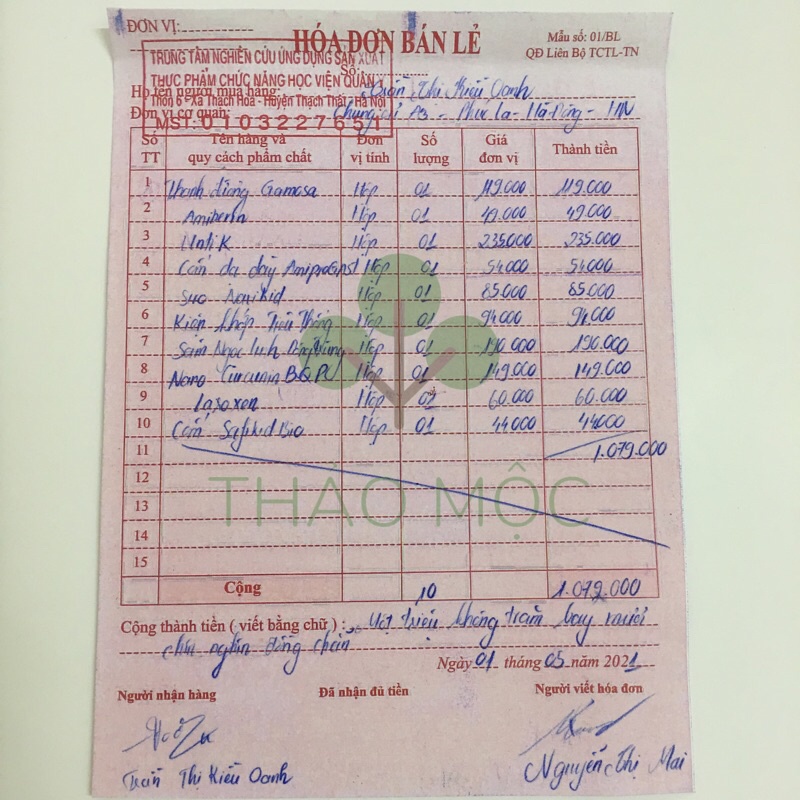 ĐƠN VỊ:
HÓA ĐƠN BÁN LẺ
Mẫu số: 01/BL
QĐ Liên Bộ TCTL-TN
TRUNG TÂM NGHIÊN CỨU ỨNG DỤNG SẢN XUẤT
THỰC PHẨM CHỨC NĂNG HỌC VIỆN QUÂN Y
Thôn 6 - Xã Thạch Hoà - Huyện Thạch Thất - Hà Nội
MST: 0103227651
Số:
Họ tên người mua hàng: Trần Thị Kiều Oanh
Đơn vị cơ quan: Chung cư P3 - Phúc La - Hà Đông - HN
Số TT Tên hàng và quy cách phẩm chất Đơn vị tính Số lượng Giá đơn vị Thành tiền
1 Thanh đường Gamosa Hộp 01 119.000 119.000
2 Hộp 01 49.000 49.000
3 Unti K Hộp 01 235.000 235.000
4 Cốm dạ dày Hộp 01 54.000 54.000
5 Hộp 01 85.000 85.000
6 Kiện khớp Tiêu Thống Hộp 01 94.000 94.000
7 Sâm Ngọc Linh Hộp 01 190.000 190.000
8 Nano Curcumin Hộp 01 149.000 149.000
9 Lasoxen Hộp 60.000 60.000
10 Cốm Safikid Bio Hộp 01 44000 44000
11 1.079.000
12
13
14
15
THẢO MỘC
Cộng 10 1.079.000
Cộng thành tiền ( viết bằng chữ ) : Một triệu không trăm bảy mươi
chín nghìn đồng chẵn
Ngày 01 tháng 05 năm 2021
Người nhận hàng Đã nhận đủ tiền Người viết hóa đơn
Trần Thị Kiều Oanh Nguyễn Thị Mai